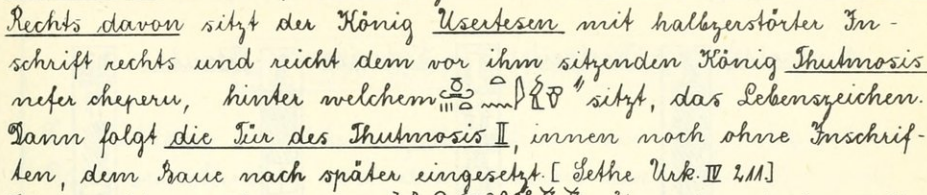 Rechts davon sitzt der König Usertesen mit halbzerstörter In-
schrift rechts und reicht dem vor ihm sitzenden König Thutmosis
nefer cheperu, hinter welchem " sitzt, das Lebenszeichen.
Dann folgt die Tür des Thutmosis II, innen noch ohne Inschrif-
ten, dem Baue nach später eingesetzt. [Sethe Urk. IV 211]